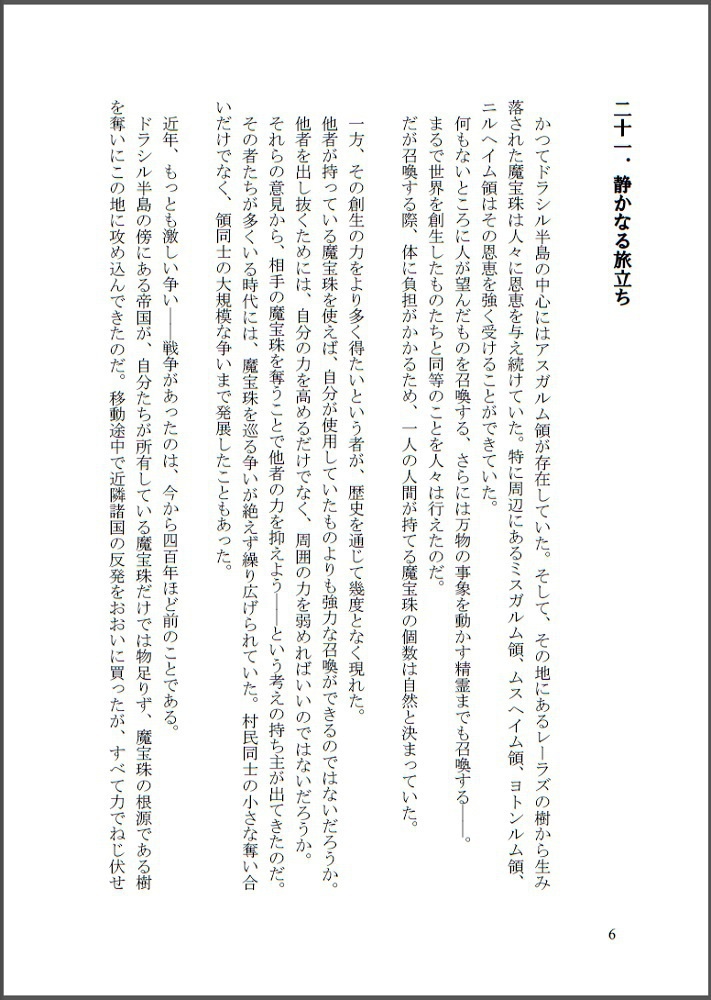 二十一．静かなる旅立ち
かつてドラシル半島の中心にはアスガルム領が存在していた。そして、その地にあるレーラズの樹から生み
落された魔宝珠は人々に恩恵を与え続けていた。特に周辺にあるミスガルム領、ムスヘイム領、ヨトンルム領、
ニルヘイム領はその恩恵を強く受けることができていた。
何もないところに人が望んだものを召喚する、さらには万物の事象を動かす精霊までも召喚する――。
まるで世界を創生したものたちと同等のことを人々は行えたのだ。
だが召喚する際、体に負担がかかるため、一人の人間が持てる魔宝珠の個数は自然と決まっていた。
一方、その創生の力をより多く得たいという者が、歴史を通じて幾度となく現れた。
他者が持っている魔宝珠を使えば、自分が使用していたものよりも強力な召喚ができるのではないだろうか。
他者を出し抜くためには、自分の力を高めるだけでなく、周囲の力を弱めればいいのではないだろうか。
それらの意見から、相手の魔宝珠を奪うことで他者の力を抑えよう――という考えの持ち主が出てきたのだ。
その者たちが多くいる時代には、魔宝珠を巡る争いが絶えず繰り広げられていた。村民同士の小さな奪い合
いだけでなく、領同士の大規模な争いまで発展したこともあった。
近年、もっとも激しい争い――戦争があったのは、今から四百年ほど前のことである。
ドラシル半島の傍にある帝国が、自分たちが所有している魔宝珠だけでは物足りず、魔宝珠の根源である樹
を奪いにこの地に攻め込んできたのだ。移動途中で近隣諸国の反発をおおいに買ったが、すべて力でねじ伏せ
6